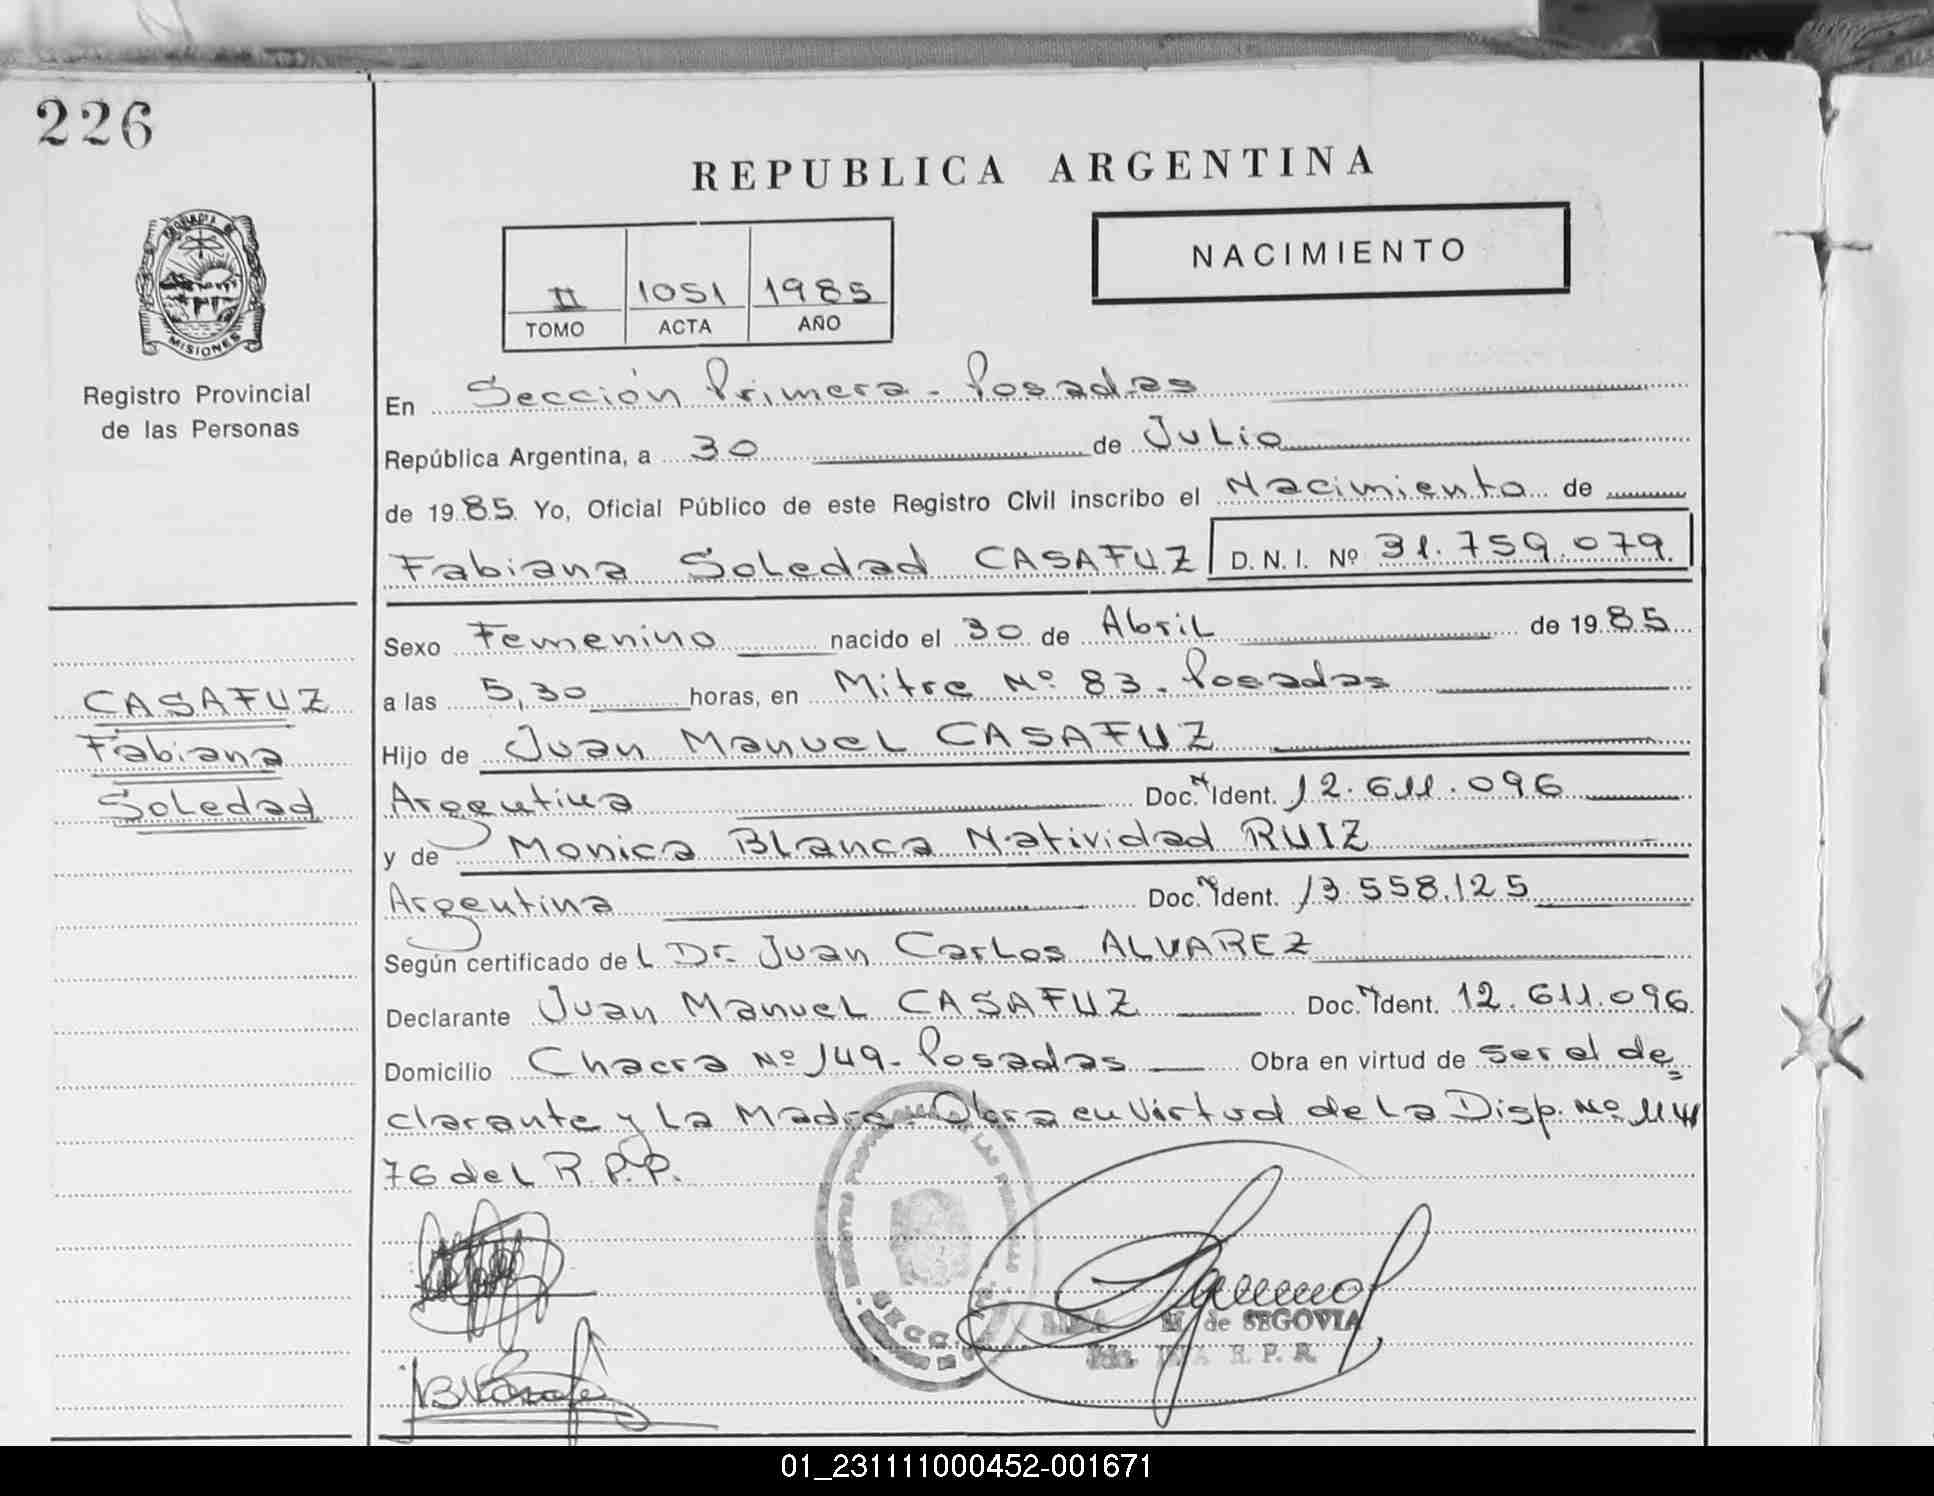 226
REPUBLICA ARGENTINA
NACIMIENTO
II 1051 1985
TOMO ACTA AÑO
MISIONES
Registro Provincial
de las Personas
En Sección Primera - Posadas
República Argentina, a 30 de Julio
de 1985 Yo, Oficial Público de este Registro Civil inscribo el Nacimiento de
Fabiana Soledad CASAFUZ D. N. I. Nº 31.759.079
Sexo Femenino nacido el 30 de Abril de 1985
a las 5,30 horas, en Mitre Nº 83 - Posadas
CASAFUZ
Fabiana
Soledad
Hijo de Juan Manuel CASAFUZ
Argentina Doc. Ident. 12.611.096
y de Monica Blanca Natividad RUIZ
Argentina Doc. Ident. 13.558.125
Según certificado del Dr. Juan Carlos ALVAREZ
Declarante Juan Manuel CASAFUZ Doc. Ident. 12.611.096
Domicilio Chacra Nº 149 - Posadas Obra en virtud de ser el de=
clarante y La Madre - Obra en Virtud de La Disp. Nº
76 del R.P.P.
de SEGOVIA
R. P. R.
01_231111000452-001671